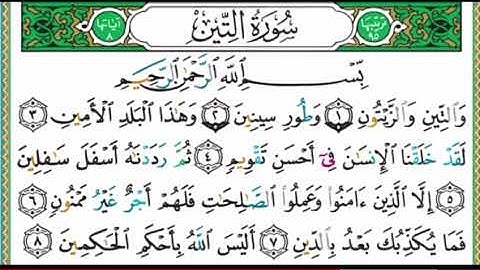 ترتيبها ٩٥ سُورَةُ التِّينِ آياتها ٨
بِسْمِ اللَّهِ الرَّحْمَٰنِ الرَّحِيمِ
وَالتِّينِ وَالزَّيْتُونِ ١ وَطُورِ سِينِينَ ٢ وَهَٰذَا الْبَلَدِ الْأَمِينِ ٣
لَقَدْ خَلَقْنَا الْإِنسَانَ فِي أَحْسَنِ تَقْوِيمٍ ٤ ثُمَّ رَدَدْنَاهُ أَسْفَلَ سَافِلِينَ
٥ إِلَّا الَّذِينَ آمَنُوا وَعَمِلُوا الصَّالِحَاتِ فَلَهُمْ أَجْرٌ غَيْرُ مَمْنُونٍ ٦
فَمَا يُكَذِّبُكَ بَعْدُ بِالدِّينِ ٧ أَلَيْسَ اللَّهُ بِأَحْكَمِ الْحَاكِمِينَ ٨